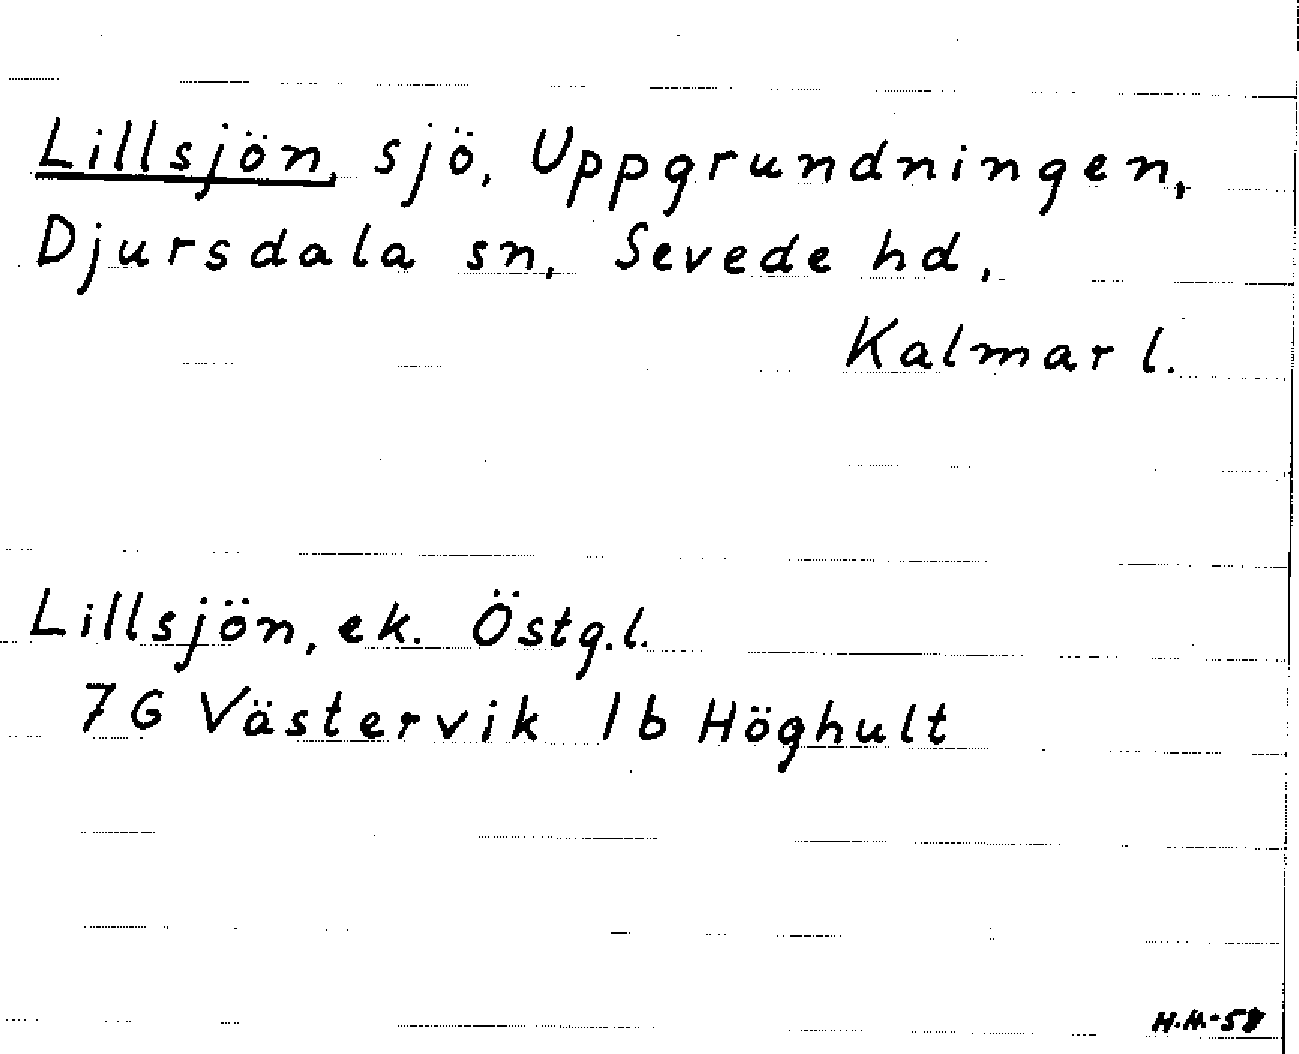 Lillsjön, sjö, Uppgrundningen,
Djursdala sn, Sevede hd,
Kalmar l.
Lillsjön, ek. Östg.l.
7G Västervik 1b Höghult
H.M-58